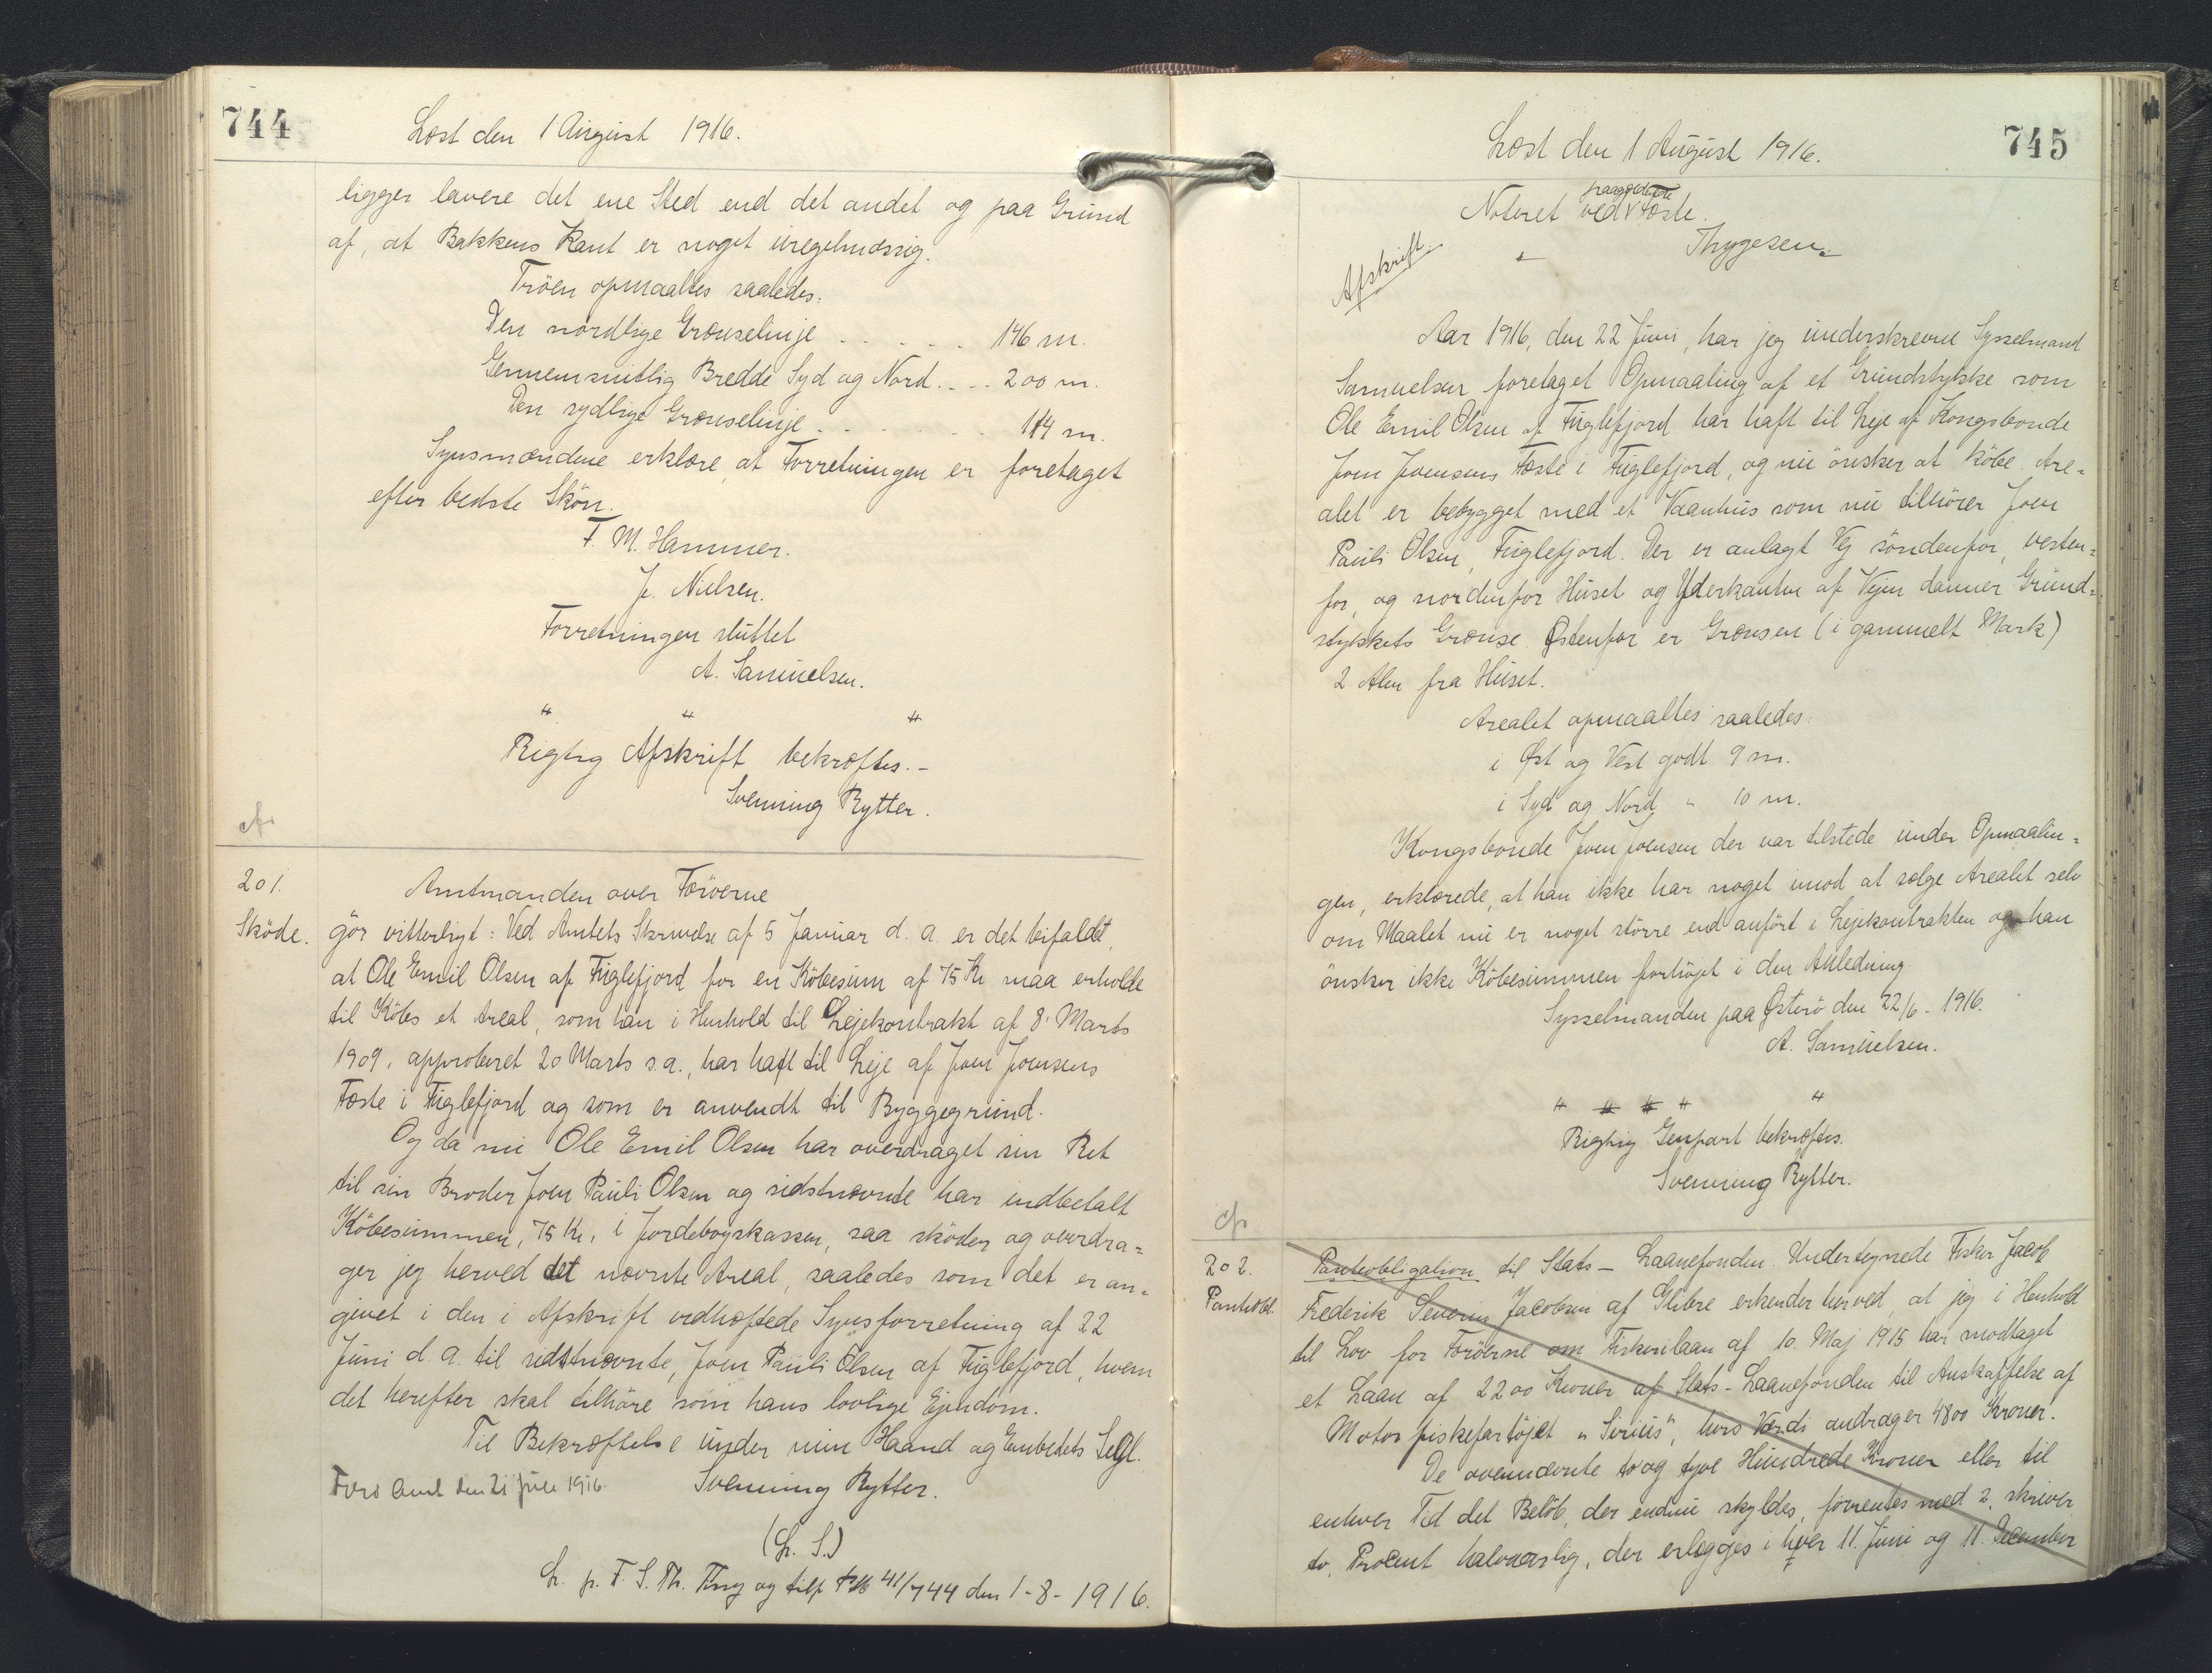 744
Læst den 1 August 1916.
ligger lavere det ene Sted end det andet og paa Grund
af, at Bakkens Kant er noget uregelmæssig.
Tröen opmaaltes saaledes:
Den nordlige Grænselinje . . . . . 146 m.
Gennemsnitlig Bredde Syd og Nord. . . . 200 m.
Den sydlige Grænselinje . . . . . . . 114 m.
Synsmændene erklære, at Forretningen er foretaget
efter bedste Skön.
F. M. Hammer.
J. Nielsen.
Forretningen sluttet
A. Samuelsen.
" " "
Rigtig Afskrift bekræftes.-
Svenning Rytter.
cfr
201. Amtmanden over Færöerne
Sköde. gör vitterligt: Ved Amtets Skrivelse af 5 Januar d. a. er det bifaldet,
at Ole Emil Olsen af Fuglefjord for en Köbesum af 75 Kr maa erholde
til Köbs et Areal, som han i Henhold til Lejekontrakt af 8. Marts
1909, approberet 20 Marts s.a., har haft til Leje af Joen Joensens
Fæste i Fuglefjord og som er anvendt til Byggegrund.
Og da nu Ole Emil Olsen har overdraget sin Ret
til sin Broder Joen Pauli Olsen og sidstnævnte har indbetalt
Köbesummen, 75 Kr, i Jordebogskassen, saa sköder og overdra=
ger jeg herved det nævnte Areal, saaledes som det er an=
givet i den i Afskrift vedhæftede Synsforretning af 22
Juni d. a. til sidstnævnte, Joen Pauli Olsen af Fuglefjord, hvem
det herefter skal tilhöre som hans lovlige Ejendom.
Til Bekræftelse under min Haand og Embedets Segl.
Færö Amt den 21 Juli 1916. Svenning Rytter.
(L. S.)
L. p. F. S. Th. Ting og tilf 41/744 den 1-8-1916.
745
Læst den 1 August 1916.
paagældende
Noteret ved Fæste.
Thygesen.
Afskrift.
Aar 1916, den 22 Juni, har jeg underskrevne Sysselmand
Samuelsen foretaget Opmaaling af et Grundstykke som
Ole Emil Olsen af Fuglefjord har haft til Leje af Kongsbonde
Joen Joensens Fæste i Fuglefjord, og nu önsker at köbe. Are=
alet er bebygget med et Vaanhus som nu tilhörer Joen
Pauli Olsen, Fuglefjord. Der er anlagt Vej söndenfor, vesten=
for, og nordenfor Huset og Yderkanten af Vejen danner Grund=
stykkets Grænse. Østenfor er Grænsen (i gammelt Mark)
2 Alen fra Huset.
Arealet opmaaltes saaledes:
i Øst og Vest godt 9 m.
i Syd og Nord " 10 m.
Kongsbonde Joen Joensen der var tilstede under Opmaalin=
gen, erklærede, at han ikke har noget imod at sælge Arealet selv
om Maalet nu er noget större end anfört i Lejekontrakten og han
önsker ikke Köbesummen forhöjet i den Anledning.
Sysselmanden paa Østerö den 22/6 - 1916.
A. Samuelsen.
" " " " "
Rigtig Genpart bekræftes.
Svenning Rytter.
cfr
202. Panteobligation til Stats-Laanefonden Undertegnede Fisker Jacob
Pantobl. Frederik Severin Jacobsen af Glibre erkender herved, at jeg i Henhold
til Lov for Færöerne om Fiskerilaan af 10. Maj 1915 har modtaget
et Laan af 2200 Kroner af Stats-Laanefonden til Anskaffelse af
Motorfiskefartöjet "Sirius", hvis Værdi andrager 4800 Kroner.
De ovennævnte to og tyve Hundrede Kroner eller til
enhver Tid det Belöb, der endnu skyldes, forrentes med 2, skriver
to, Procent halvaarlig, der erlægges i hver 11. Juni og 11. December